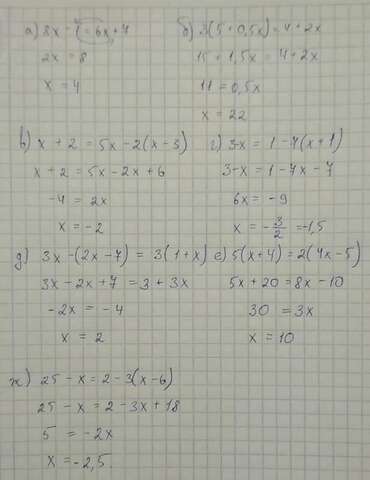 а) 8x - 1 = 6x + 7
2x = 8
x = 4
б) 3(5 + 0,5x) = 4 + 2x
15 + 1,5x = 4 + 2x
11 = 0,5x
x = 22
в) x + 2 = 5x - 2(x - 3)
x + 2 = 5x - 2x + 6
-4 = 2x
x = -2
г) 3-x = 1 - 7(x + 1)
3-x = 1 - 7x - 7
6x = -9
x = -3/2 = -1,5
д) 3x - (2x - 7) = 3(1 + x)
3x - 2x + 7 = 3 + 3x
-2x = -4
x = 2
е) 5(x + 4) = 2(4x - 5)
5x + 20 = 8x - 10
30 = 3x
x = 10
ж) 25 - x = 2 - 3(x - 6)
25 - x = 2 - 3x + 18
5 = -2x
x = -2,5